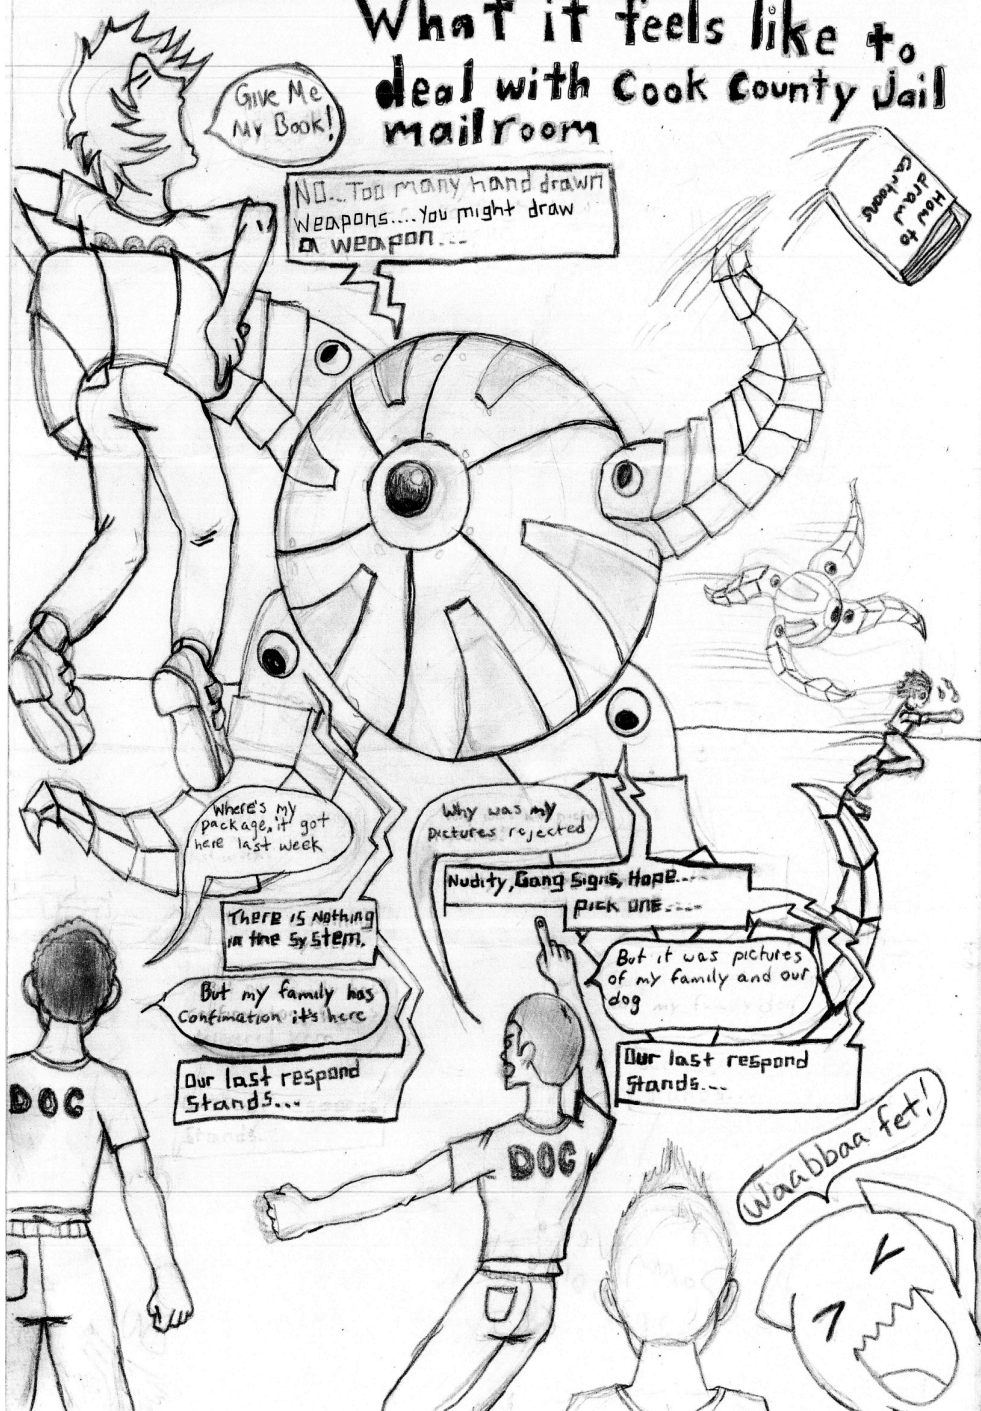 What it feels like to
deal with Cook County Jail
mailroom
Give Me
My Book!
NO...Too many hand drawn
weapons....You might draw
a weapon...
How to
draw
cartoons
Where's my
package, it got
here last week
There is Nothing
in the System.
But my family has
Confimation it's here
Our last respond
Stands...
Why was my
pictures rejected
Nudity, Gang Signs, Hope....
pick one....
But it was pictures
of my family and our
dog
Our last respond
Stands...
DOC
DOC
Waabbaa fet!